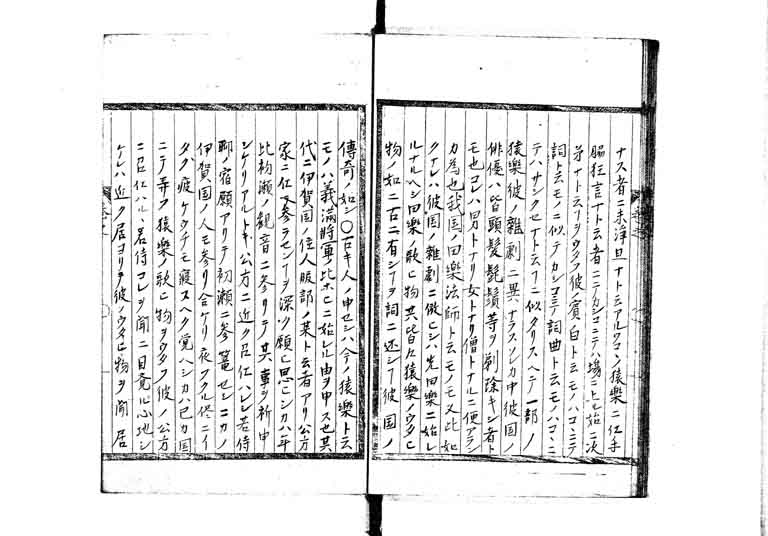 ナス者ニ末浄旦ナト云アルワコン猿樂ニ仕手
脇狂言ナト云者ニテカシコニテハ場ニ上ル始ニ次
才ナト云フヲウタフ彼ノ賓白ト云モノハコヽニテ
詞ト云モノニ似テカシコニテ詞曲ト云モノハコヽニ
テハサシクセナト云フニ似タリスヘテ一部ノ
猿樂彼ノ雜劇ニ異ナラス
俳優ハ皆頭髮髭鬚等ヲ剃除キシ者ト
モ也コレハ男トナリ女トナリ僧トナルニ便アラン
カ為也我国ノ田樂法師ト云モノモ又此如
クナレハ彼国雜劇ニ倣ヒシハ先田樂ニ始レ
ルナルヘシ田樂ノ歌ヒ物共皆々猿樂ノウタヒ
物ノ如ニ古ニ有シフヲ詞ニ述シフ彼国ノ
傳奇ノ如シ〇古キ人ノ申セシハ今ノ猿樂ト云
モノハ義満將軍ノ比ホヒニ始レル由ヲ申ス也其
代ニ伊賀国ノ住人服部ノ某ト云者アリ公方
家ニ仕ヘ参ラセンフヲ深ク願ヒ思ヒシカハ年
比初瀬ノ観音ニ参リテ其事ヲ祈申
シケリアルトキ公方ニ近ク召仕ハレシ若侍
聊ノ宿願アリテ初瀬ニ参篭セシニカノ
伊賀国ノ人モ参リ合ケリ夜フクル侭ニイ
タク疲ケタチモ寝スヘク覚ヘシカハ己カ国
ニテ弄フ猿樂ノ歌ヒ物ヲウタフ彼ノ公方
ニ召仕ハルヽ若侍コレヲ聞ニ目覚ル心地シ
ケレハ近ク居ヨリテ彼ノウタヒ物ヲ聞居